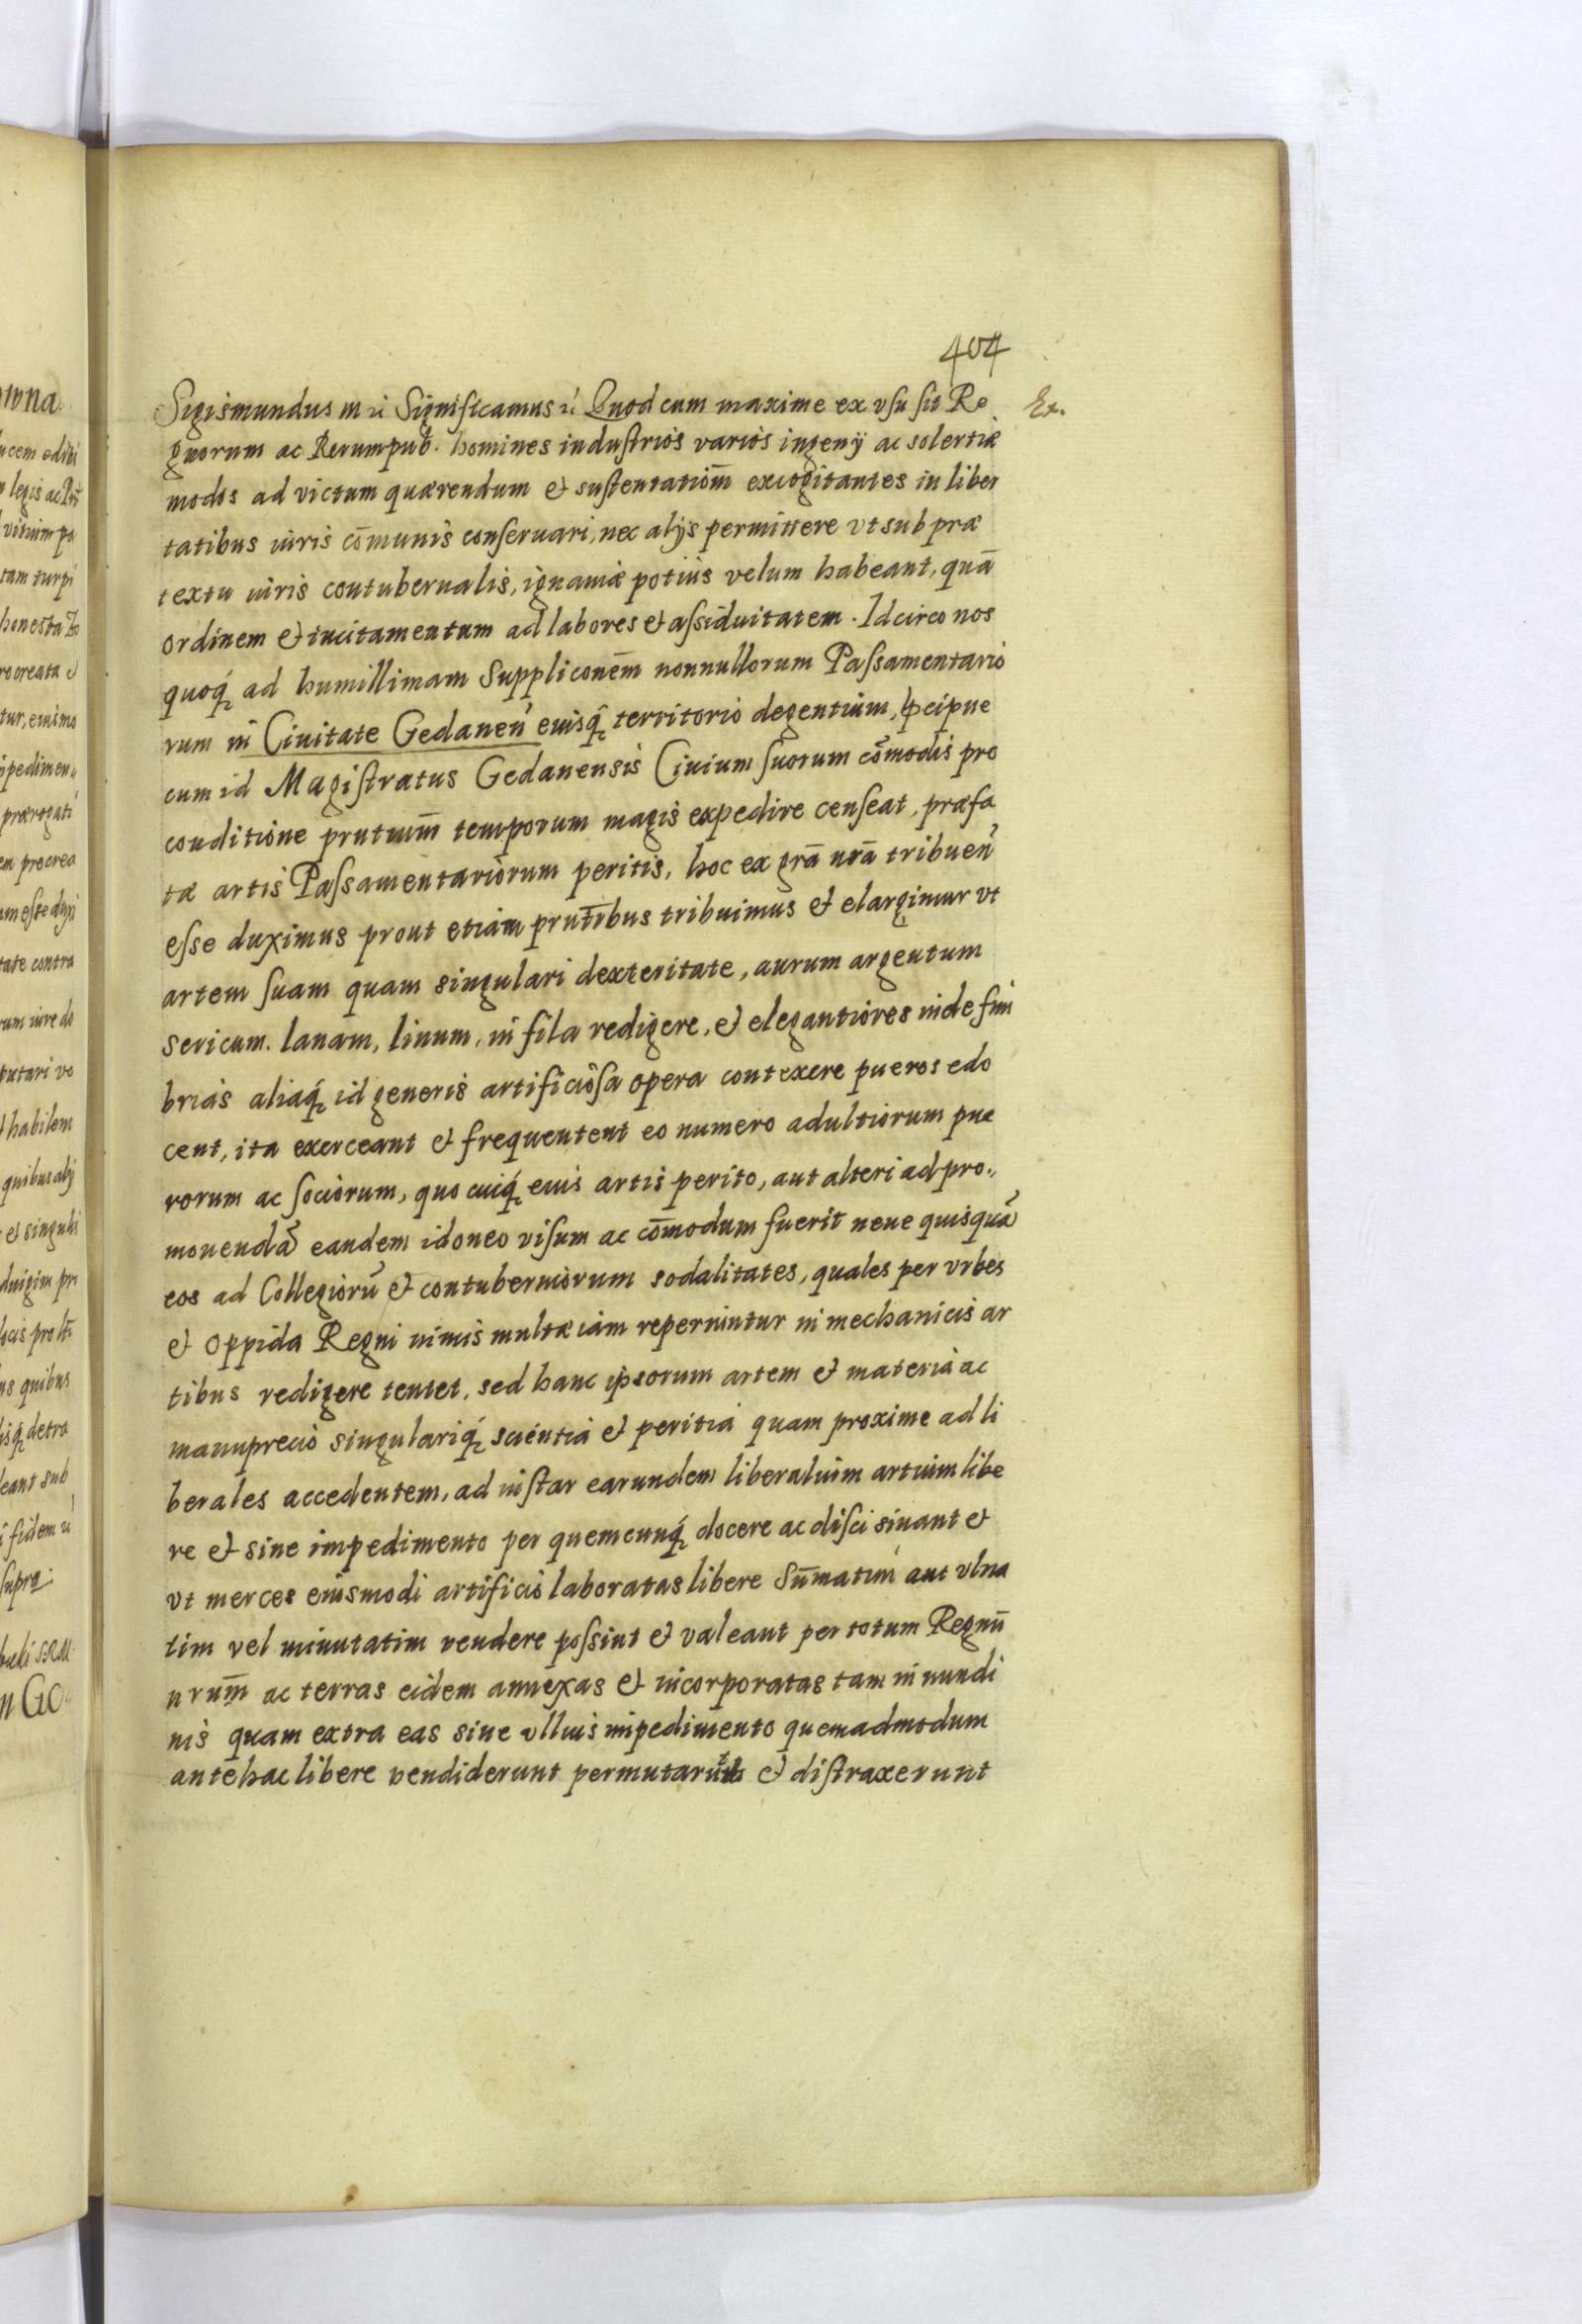 404
Sigismundus III &c Significamus &c Quod cum maxime ex vsu sit Re Ex.
gnorum ac Rerumpub. homines industrios varios ingenÿ ac solertiæ
modos ad victum quærendum & sustentatiom̄ excogitantes in liber
tatibus iuris com̄unis conseruari, nec alÿs permittere vt sub præ
textu iuris contubernalis, ignauiæ potius velum habeant, quā
ordinem & incitamentum ad labores & assiduitatem. Idcirco nos
quoq́ʒ ad humillimam Suppliconēm nonnullorum Passamentario
rum in Ciuitate Gedanen̄ eiusq́ʒ territorio degentium, p̱cipue
cum id Magistratus Gedanensis Ciuium suorum com̄odis pro
conditione prntium̄ temporum magis expedire censeat, præfa
tæ artis Passamentariorum peritis, hoc ex grā nrā tribuen̄
esse duximus prout etiam prntībus tribuimus & elargimur vt
artem suam quam singulari dexteritate, aurum argentum
sericum. lanam, linum, in fila redigere, & elegantiores inde fim
brias aliaq́ʒ id generis artificiosa opera contexere pueros edo
cent, ita exerceant & frequentent eo numero adultiorum pue
rorum ac sociorum, quo cuiq́ʒ eius artis perito, aut alteri ad pro„
mouendā eandem idoneo visum ac com̄odum fuerit neue quisquā
eos ad Collegiorū & contuberniorum sodalitates, quales per vrbes
& oppida Regni nimis multæ iam reperiuntur in mechanicis ar
tibus redigere tentet, sed hanc ipsorum artem & materia ac
manuprecio singulariq́ʒ scientia & peritia quam proxime ad li
berales accedentem, ad instar earundem liberalium artium libe
re & sine impedimento per quemcunq́ʒ docere ac disci sinant &
vt merces eiusmodi artificio laboratas libere Sum̄atim aut vlna
tim vel minutatim vendere possint & valeant per totum Regnū
nrum̄ ac terras eidem annexas & incorporatas tam in nundi
nis quam extra eas sine vllius impedimento quemadmodum
antehac libere vendiderunt permutarūt & distraxerunt